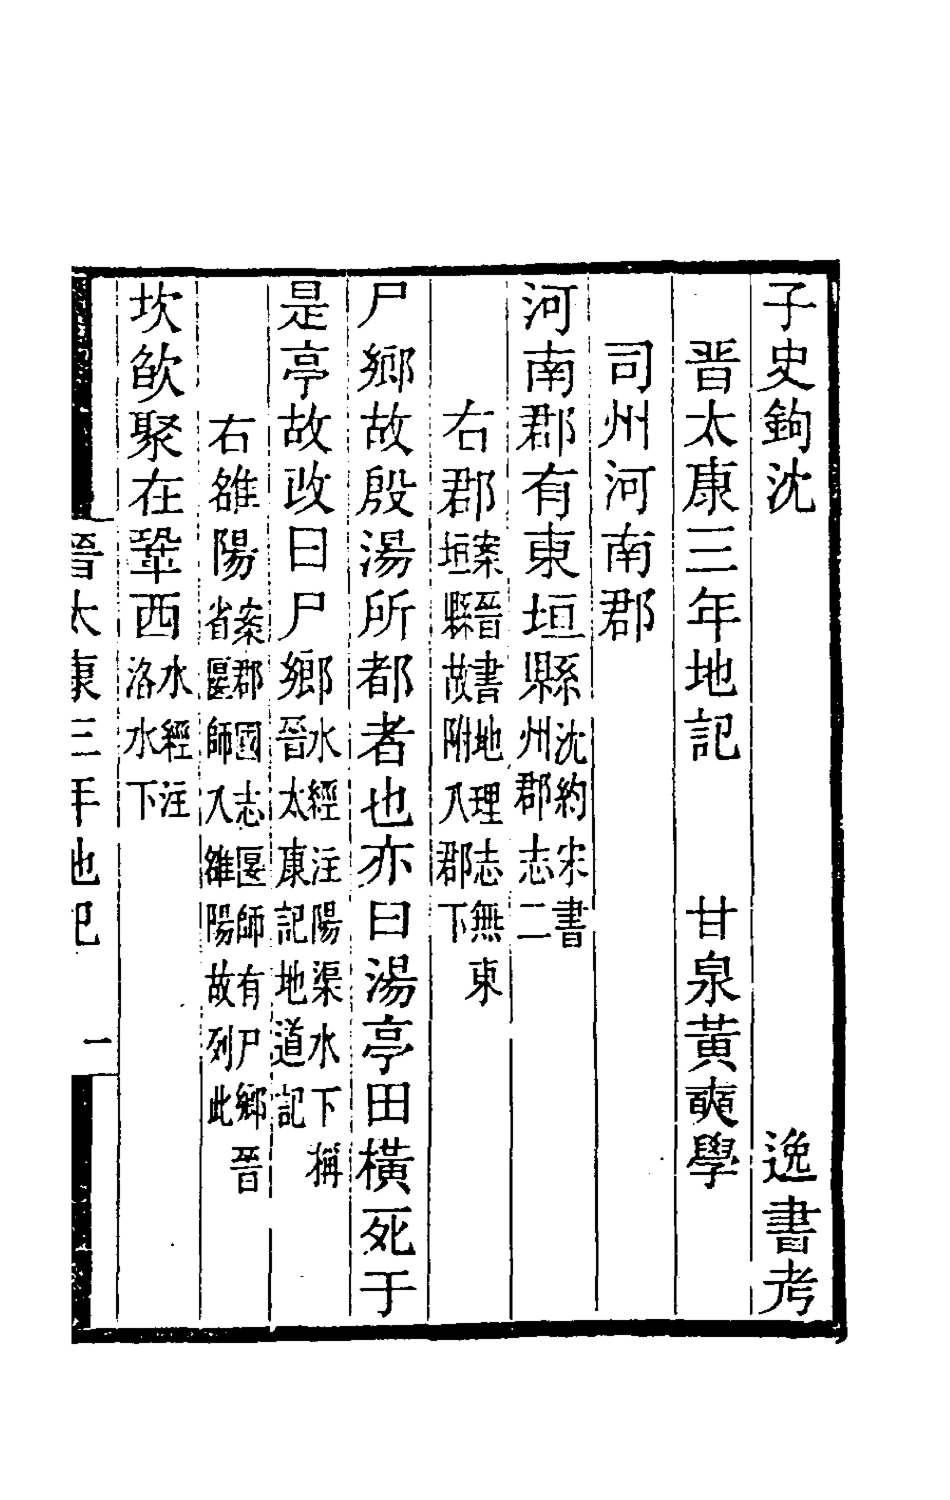 子史鉤沈　逸書考
晋太康三年地記　甘泉黃奭學
司州河南郡
河南郡有東垣縣沈約宋書州郡志二
右郡案晉書地理志無東垣縣故附入郡下
尸鄉故殷湯所都者也亦曰湯亭田橫死于
是亭故改曰尸鄉水經注陽渠水下稱晉太康記地道記
右雒陽案郡國志匽師有尸鄉晉省匽師入雒陽故列此
坎欿聚在鞏西水經注洛水下
晉太康三年地記　一